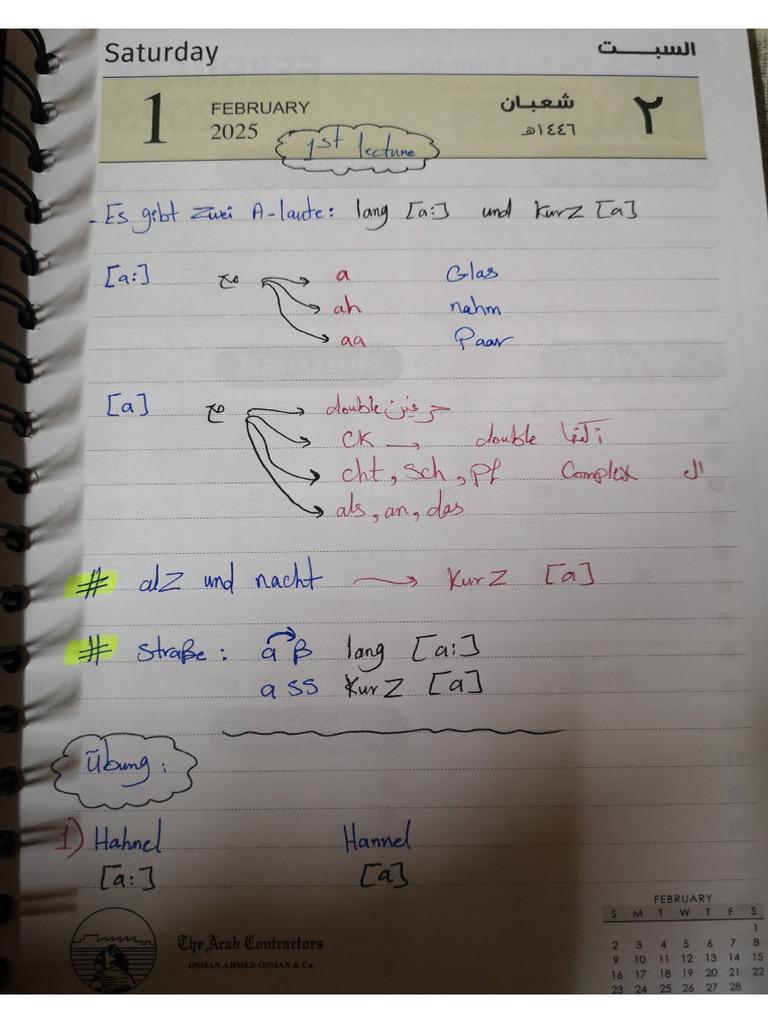 Saturday السبت
1 FEBRUARY 2025 شعبان ١٤٤٦هـ ٢
1st lecture
- Es gibt zwei A-laute: lang [a:] und kurz [a]
[a:] مع a Glas
ah nahm
aa Paar
[a] مع double حرفين
CK → double
cht, sch, pf Complex ال
als, an, das
# alz und nacht → kurz [a]
# straße: a ß lang [a:]
a ss kurz [a]
Übung:
1) Hahnel Hannel
[a:] [a]
The Arab Contractors
OSMAN AHMED OSMAN & Co.
FEBRUARY
S M T W T F S
1
2 3 4 5 6 7 8
9 10 11 12 13 14 15
16 17 18 19 20 21 22
23 24 25 26 27 28